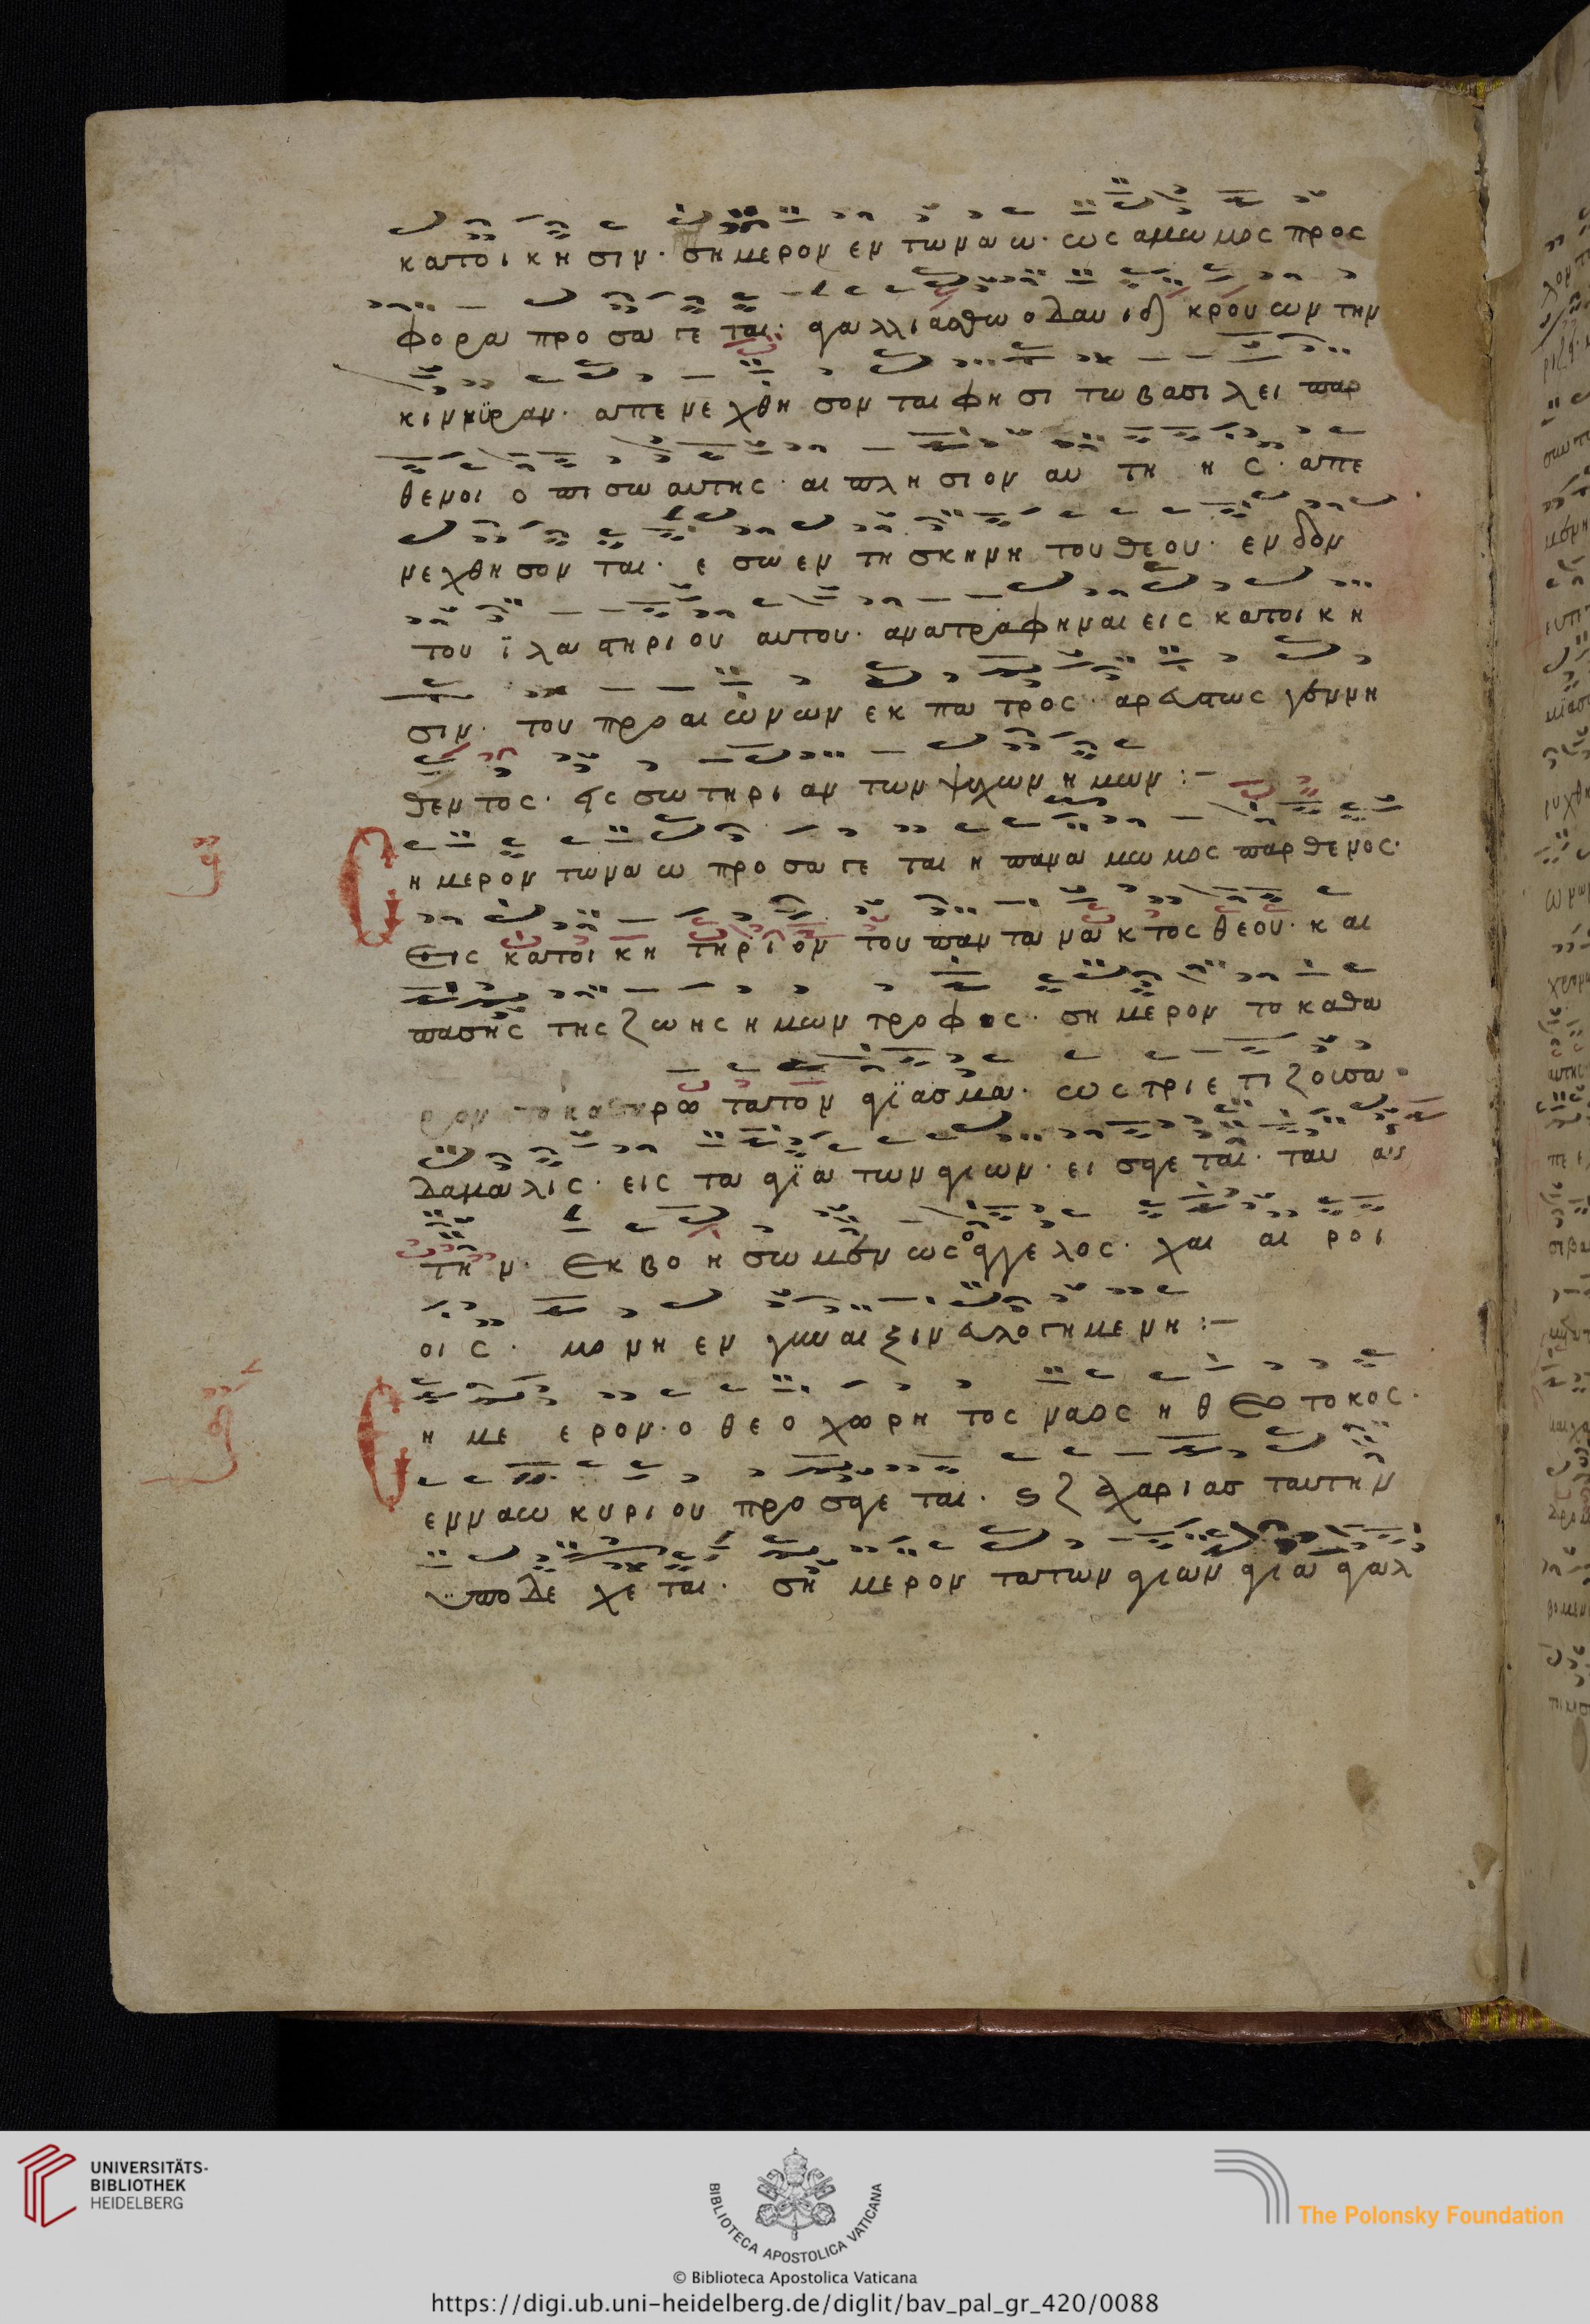 κατοικησιν· σημερον εν τω ναω· ως αμωμος προσ
φορα προσαγεται· αγαλλιασθω ο δαυιδ κρουων την
κιννϋραν· απενεχθησονται φησι τω βασιλει παρ
θενοι οπισω αυτης· αι πλησιον αυτηης· απε
νεχθησονται· εσω εν τη σκηνη του θεου· ενδον
του ϊλαστηριου αυτου· ανατραφηναι εις κατοικη
σιν· του προ αιωνων εκ πατρος· αρευστως γεννη
θεντος· εις σωτηριαν των ψυχων ημων :-
Σημερον τω ναω προσαγεται η παναμωμος παρθενος·
εις κατοικητηριον του παντανακτος θεου· και
πασης της ζωης ημων τροφος· σημερον το καθα
ρωτατον αγϊασμα· ως τριετιζουσα
δαμαλις· εις τα αγϊα των αγιων· εισαγεται· ταυ
την· εκβοησωμεν ως ο αγγελος· χαιαιροι
οις· μονη εν γυναιξιν ευλογημενη :-
Σημεερον· ο θεοχωρητος ναος η θεοτοκος·
εν ναω κυριου προσαγεται· ς ζαχαριας ταυτην
υποδεχεται· σημερον τα των αγιων αγια αγαλ
UNIVERSITÄTS-
BIBLIOTHEK
HEIDELBERG
BIBLIOTECA APOSTOLICA VATICANA
The Polonsky Foundation
© Biblioteca Apostolica Vaticana
https://digi.ub.uni-heidelberg.de/diglit/bav_pal_gr_420/0088